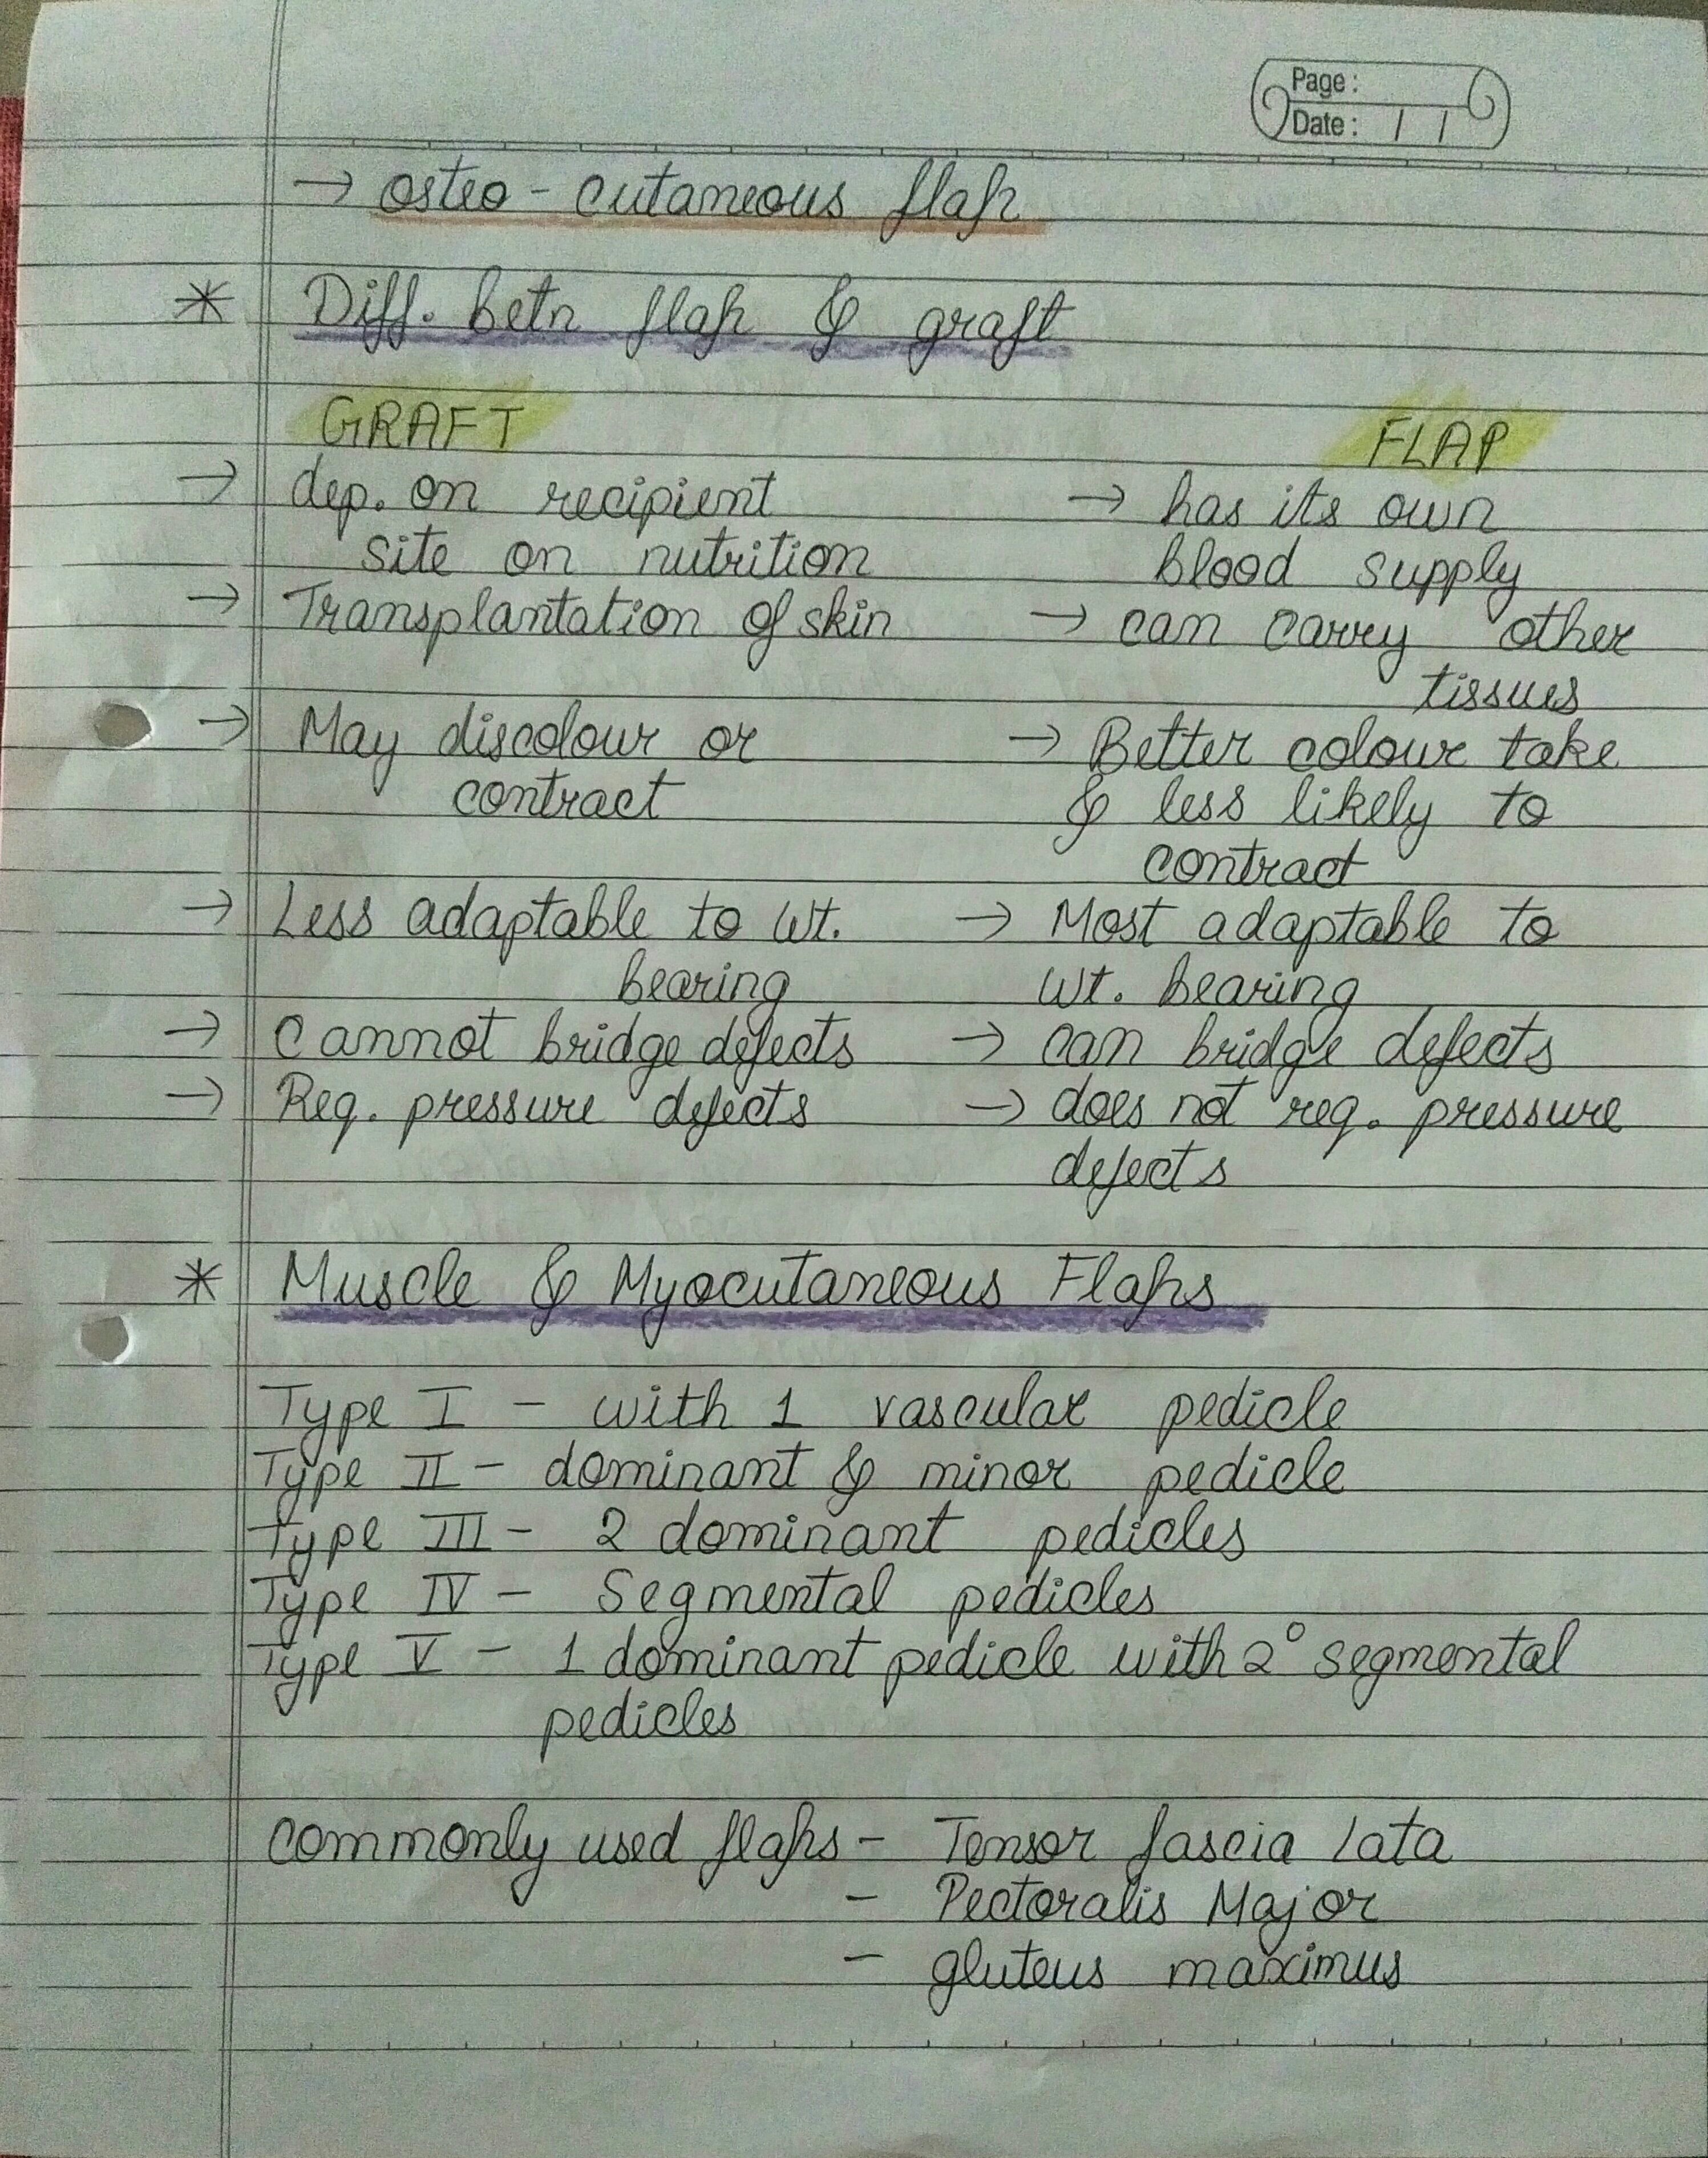 Page :
Date : / /
→ osteo - cutaneous flap
* Diff. betn flap & graft
GRAFT FLAP
→ dep. on recipient → has its own
site on nutrition blood supply
→ Transplantation of skin → can carry other
tissues
→ May discolour or → Better colour take
contract & less likely to
contract
→ Less adaptable to wt. → Most adaptable to
bearing wt. bearing
→ Cannot bridge defects → can bridge defects
→ Req. pressure defects → does not req. pressure
defects
* Muscle & Myocutaneous Flaps
Type I - with 1 vascular pedicle
Type II - dominant & minor pedicle
Type III - 2 dominant pedicles
Type IV - Segmental pedicles
Type V - 1 dominant pedicle with 2° segmental
pedicles
commonly used flaps - Tensor fascia lata
- Pectoralis Major
- gluteus maximus